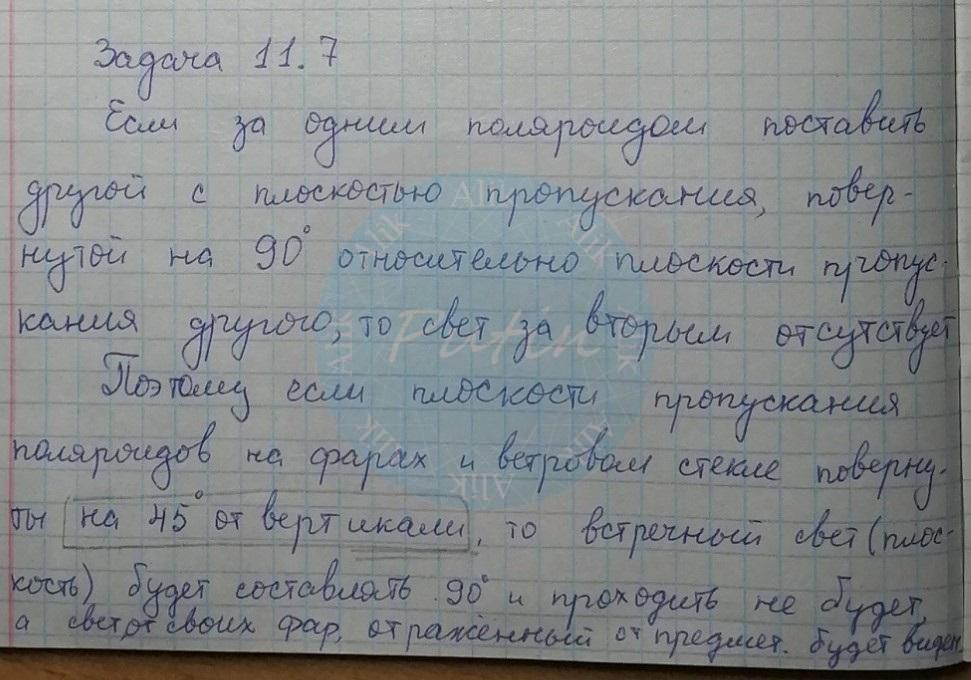 Задача 11.7
Если за одним поляроидом поставить
другой с плоскостью пропускания, повер-
нутой на 90° относительно плоскости пропус-
кания другого, то свет за вторым отсутствует
Поэтому если плоскости пропускания
поляроидов на фарах и ветровом стекле поверну-
ты на 45° от вертикали, то встречный свет (плос-
кость) будет составлять 90° и проходить не будет,
а свет от своих фар, отражённый от предмет. будет виден
Alik Alik Alik
Putin
Alik Alik Alik